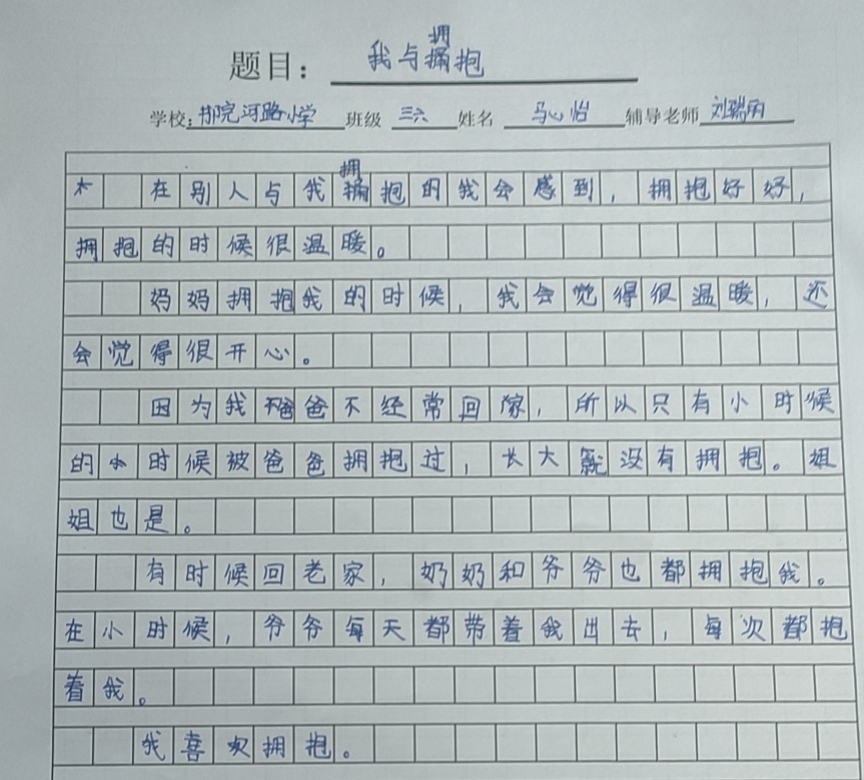 题目：我与拥抱
学校：邢院河路小学 班级 三六 姓名 马心怡 辅导老师 刘瑞丽
在别人与我拥抱的我会感到，拥抱好好，
拥抱的时候很温暖。
妈妈拥抱我的时候，我会觉得很温暖，还
会觉得很开心。
因为我爸爸不经常回家，所以只有小时候
的小时候被爸爸拥抱过，长大就没有拥抱。姐
姐也是。
有时候回老家，奶奶和爷爷也都拥抱我。
在小时候，爷爷每天都带着我出去，每次都抱
着我。
我喜欢拥抱。